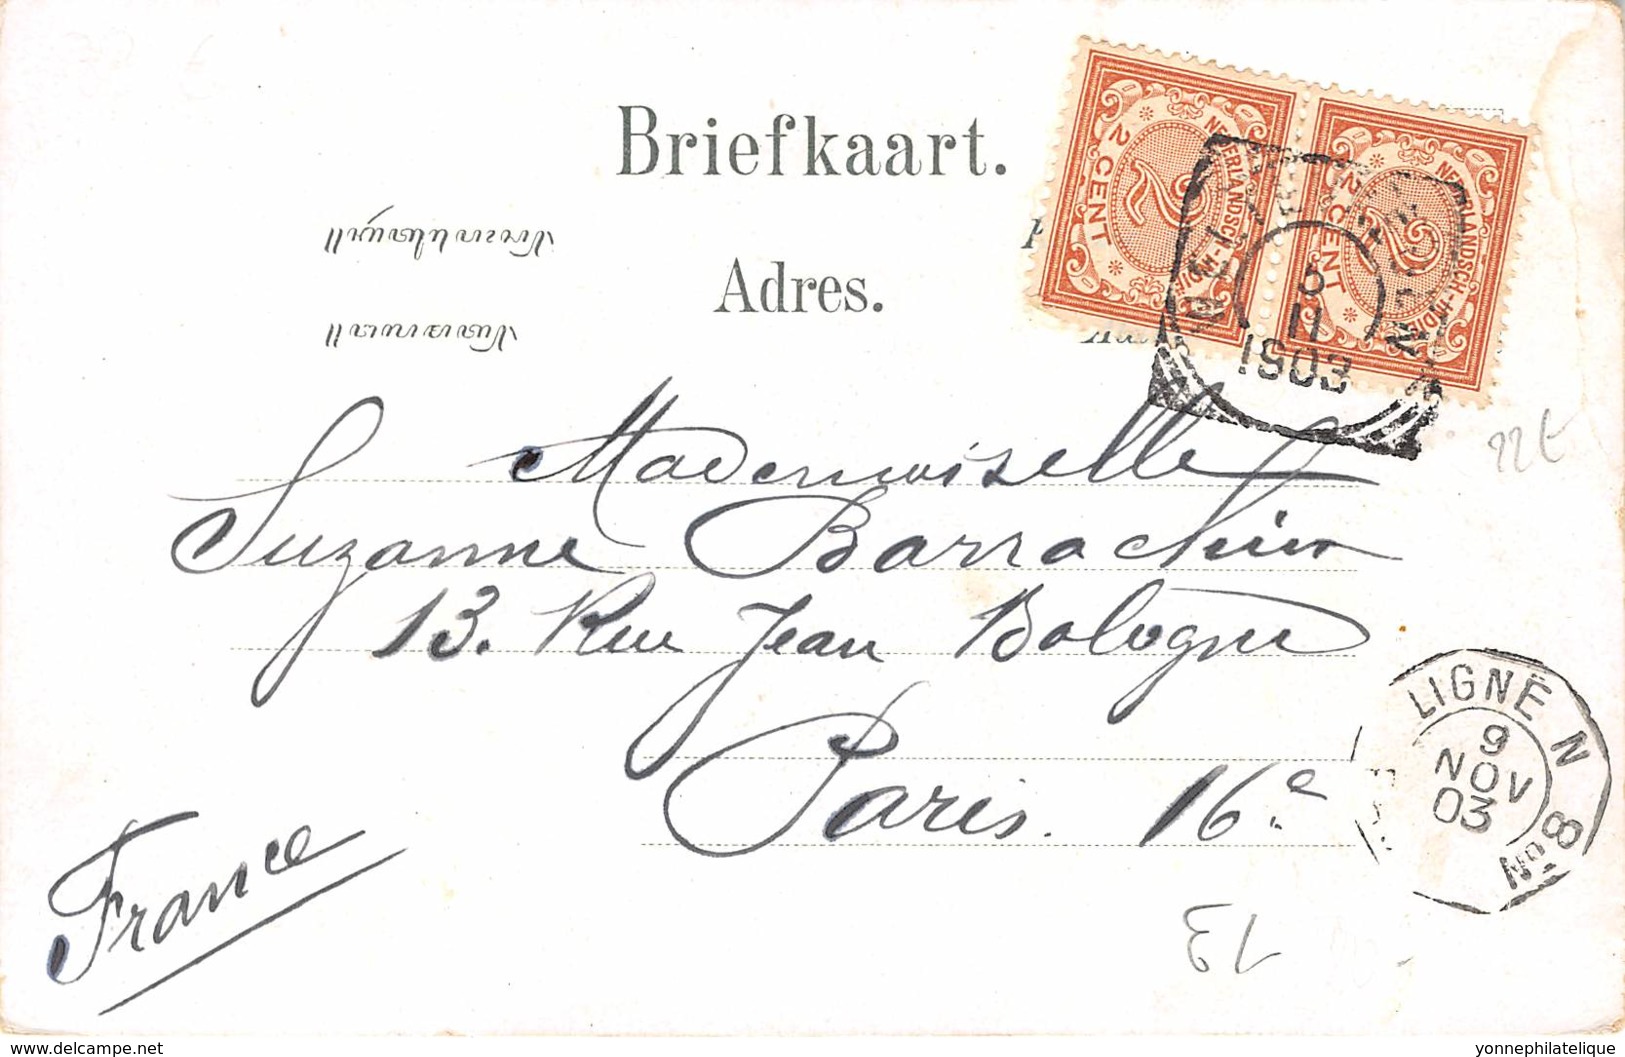 Briefkaart.
Adres.
NEDERLANDSCH-INDIË
2 CENT
2
NEDERLANDSCH-INDIË
2 CENT
2
WELTEVREDEN
5
11
1903
22 €
Mademoiselle
Suzanne Barrachin
13. Rue Jean Bologne
Paris. 16e
France
LIGNE N
9
NOV
03
No 8
13
delcampe.net
yonnephilatelique